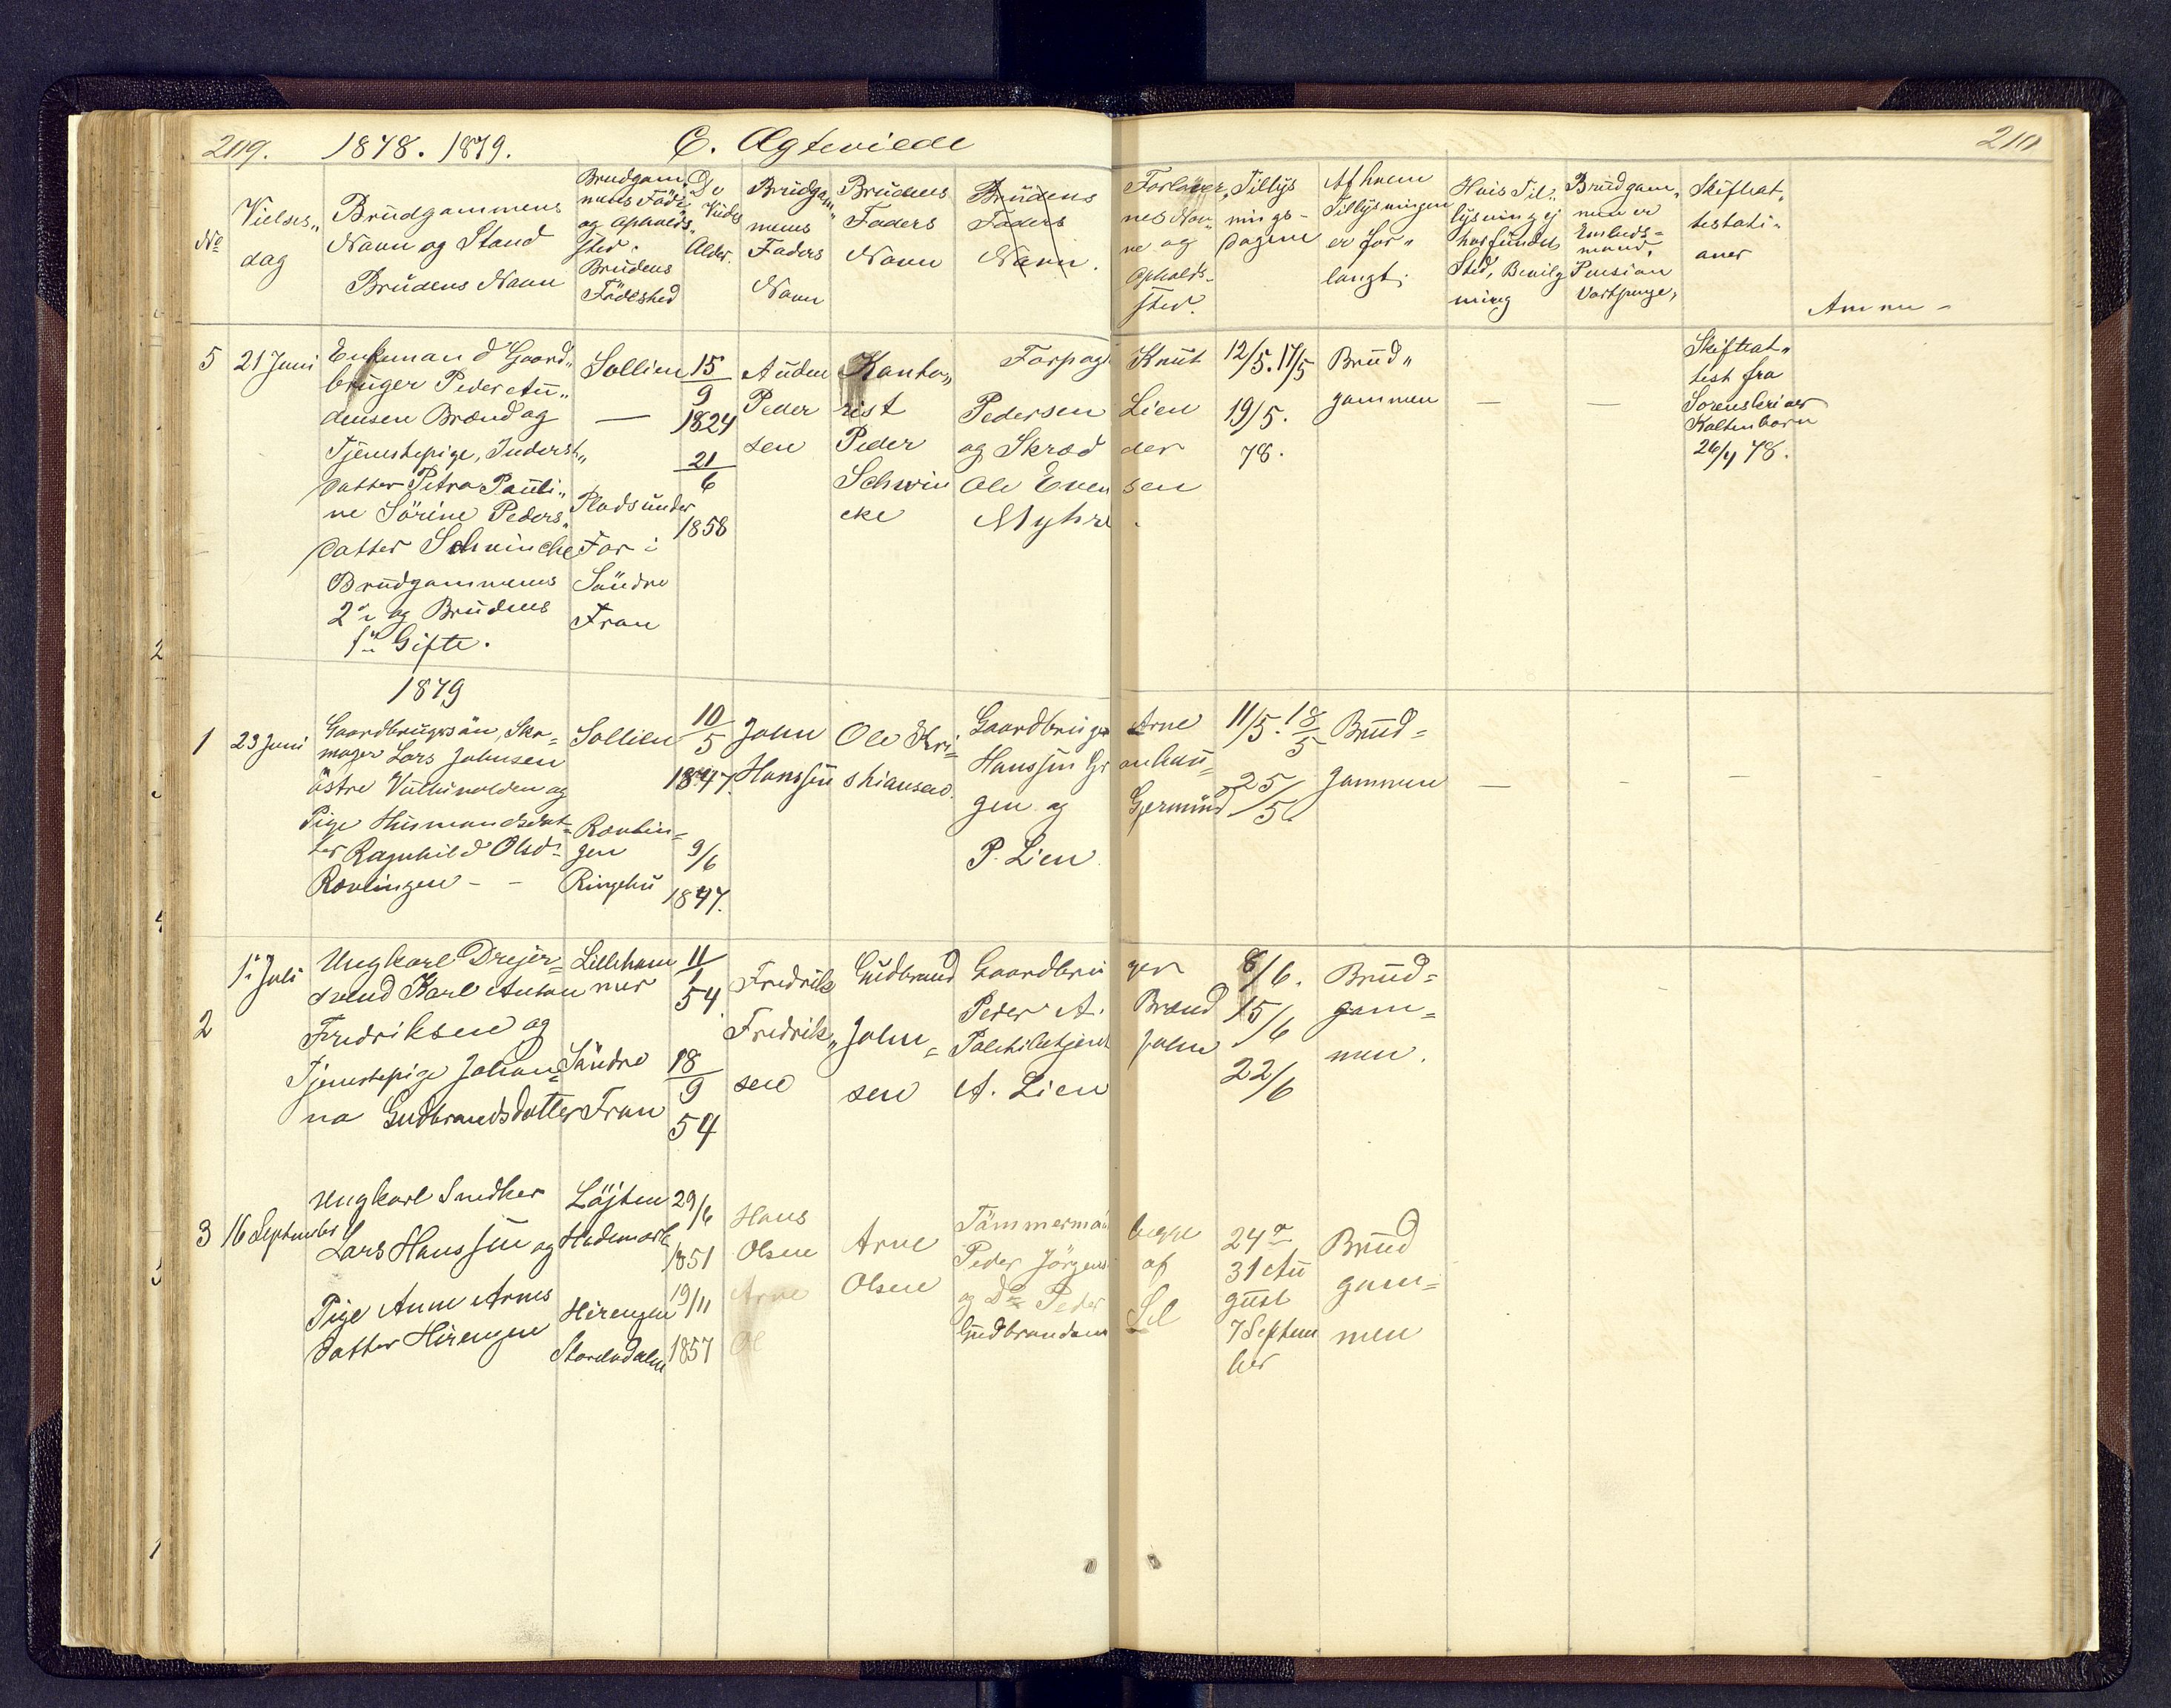 209. 1878. 1879. C. Ægteviede 210
No
Vielses„
dag
Brudgammens
Navn og Stand
Brudens Navn
Brudgam„
mens Föde
og Opholds„
sted.
Brudens
Födested
De
Viedes
Alder.
Brudgam„
mens
Faders
Navn
Brudens
Faders
Navn
Brudens
Faders
Navn.
Forlover„
nes Nav„
ne og
Opholds„
sted.
Tillys
nings-
Dagene
Af hvem
Tillysningen
er for„
langt.
Hvis Til„
lysning ej
har fundet
Sted, Bevilg
ning
Brudgam„
men er
Embeds=
mand,
Pension
Skifteat„
testati„
oner
Anm
5
21 Juni
Enkemand Gaard„
bruger Peder Au„
densen Brænd og
Tjenestepige, Inderst„
datter Petra Pauli„
ne Sörine Peders„
datter Schwincke
Brudgammens
2n og Brudens
1n Gifte.
Sollien
—
Plads under
For i
Söndre
Fron
15
9
1824
21
6
1858
Auden
Peder
sen
Kanto„
rist
Peder
Schwin
cke
Forpag. Knut
Pedersen Lien
og Skræd der
Ole Even sen
Myhre.
12/5. 17/5
19/5.
78.
Brud„
gammen
—
—
Skifteat„
test fra
Sorenskriver
Koltenborn
26/4 78.
1879
1
23 Juni
Gaardbrugersön, Sko=
mager Lars Johnsen
östre Vulluvolden og
Pige Husmandsdat=
ter Ragnhild Olsd:
Rövlingen - -
Sollien
Rövlin=
gen
Ringebu
10
5
1847.
9/6
1847.
John
Hanssen
Ole Kri=
stiansen.
Gaardbruger Arne
Hanssen Gr onhau=
gen og Gjermund
P. Lien
11/5. 18/5
25/5
Brud=
gammen
—
—
—
—
2
1n Juli
Ungkarl Drejer=
svend Karl Anton
Fredriksen og
Tjenestepige Johan=
na Gudbrandsdatter
Lilleham
mer
Söndre
Fron
11
1
54.
18
9
54
Fredrik
Fredrik„
sen
Gudbrand
John=
sen
Gaardbru ger
Peder A. Brænd
Politibetjent John
A. Lien
8/6.
15/6
22/6
Brud=
gam=
men.
3
16 September
Ungkarl Snedker
Lars Hanssen og
Pige Anne Arnes
datter Hirengen
Löjten
Hedemark
Hirengen
Storelvdalen
29/6
1851
19/11
1857
Hans
Olsen
Arne
Ol
Arne
Olsen
Tömmermænd begge
Peder Jörgens. af
og Do Peder Sel
Gudbrandsen
24de
31 Au
gust
7 Septem
ber
Brud
gam=
men